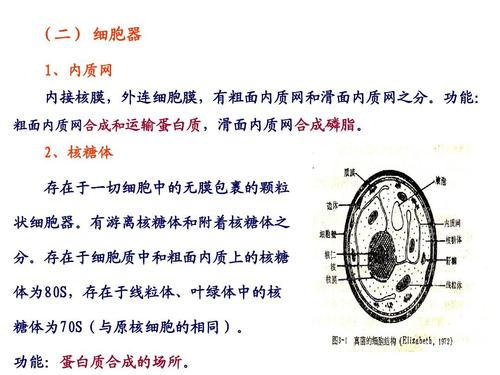 （二） 细胞器
1、内质网
内接核膜，外连细胞膜，有粗面内质网和滑面内质网之分。功能：
粗面内质网合成和运输蛋白质，滑面内质网合成磷脂。
2、核糖体
存在于一切细胞中的无膜包裹的颗粒
状细胞器。有游离核糖体和附着核糖体之
分。存在于细胞质中和粗面内质网上的核糖
体为80S，存在于线粒体、叶绿体中的核
糖体为70S（与原核细胞的相同）。
功能：蛋白质合成的场所。
质膜
液泡
边体
内质网
细胞壁
核糖体
核仁
核
核膜
线粒体
图3-1 真菌的细胞结构 (Elizabeth, 1972)